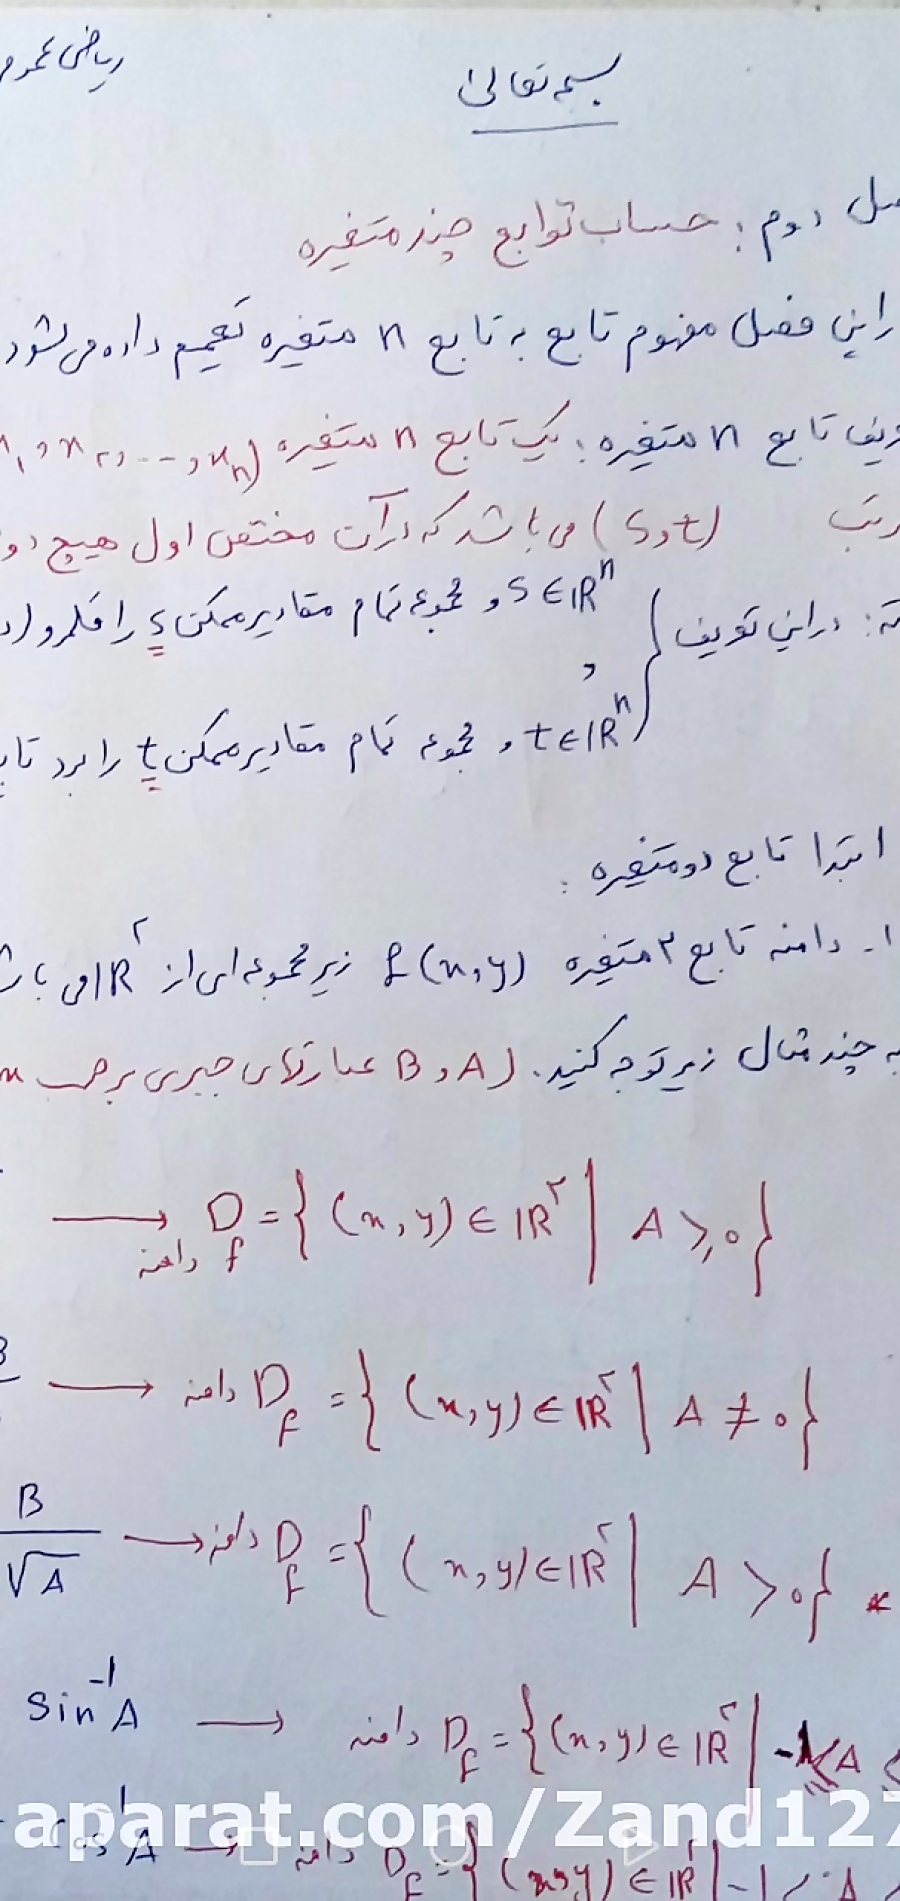 ریاضی عمومی
بسمه تعالی
فصل دوم: حساب توابع چند متغیره
در این فصل مفهوم تابع به تابع n متغیره تعمیم داده می‌شود
تعریف تابع n متغیره: یک تابع n متغیره (x₁, x₂, ..., xₙ)
مرتب (s,t) می باشد که در آن مختص اول هیچ دو
نکته: در این تعریف { s∈ℝⁿ, مجموعه تمام مقادیر ممکن s را قلمرو (د
,
t∈ℝⁿ, مجموعه تمام مقادیر ممکن t را برد تاب
ابتدا تابع دو متغیره:
۱- دامنه تابع ۲ متغیره f(x,y) زیر مجموعه ای از ℝ² می باش
به چند مثال زیر توجه کنید. (A, B عبارتهای جبری برحسب x
→ دامنه D_f = {(x,y)∈ℝ² | A ≥ 0}
B → دامنه D_f = {(x,y)∈ℝ² | A ≠ 0}
B/√A → دامنه D_f = {(x,y)∈ℝ² | A > 0} *
sin⁻¹A → دامنه D_f = {(x,y)∈ℝ² | -1 ≤ A ≤
cos⁻¹A → دامنه D_f = {(x,y)∈ℝ² | -1 ≤ A
aparat.com/Zand127